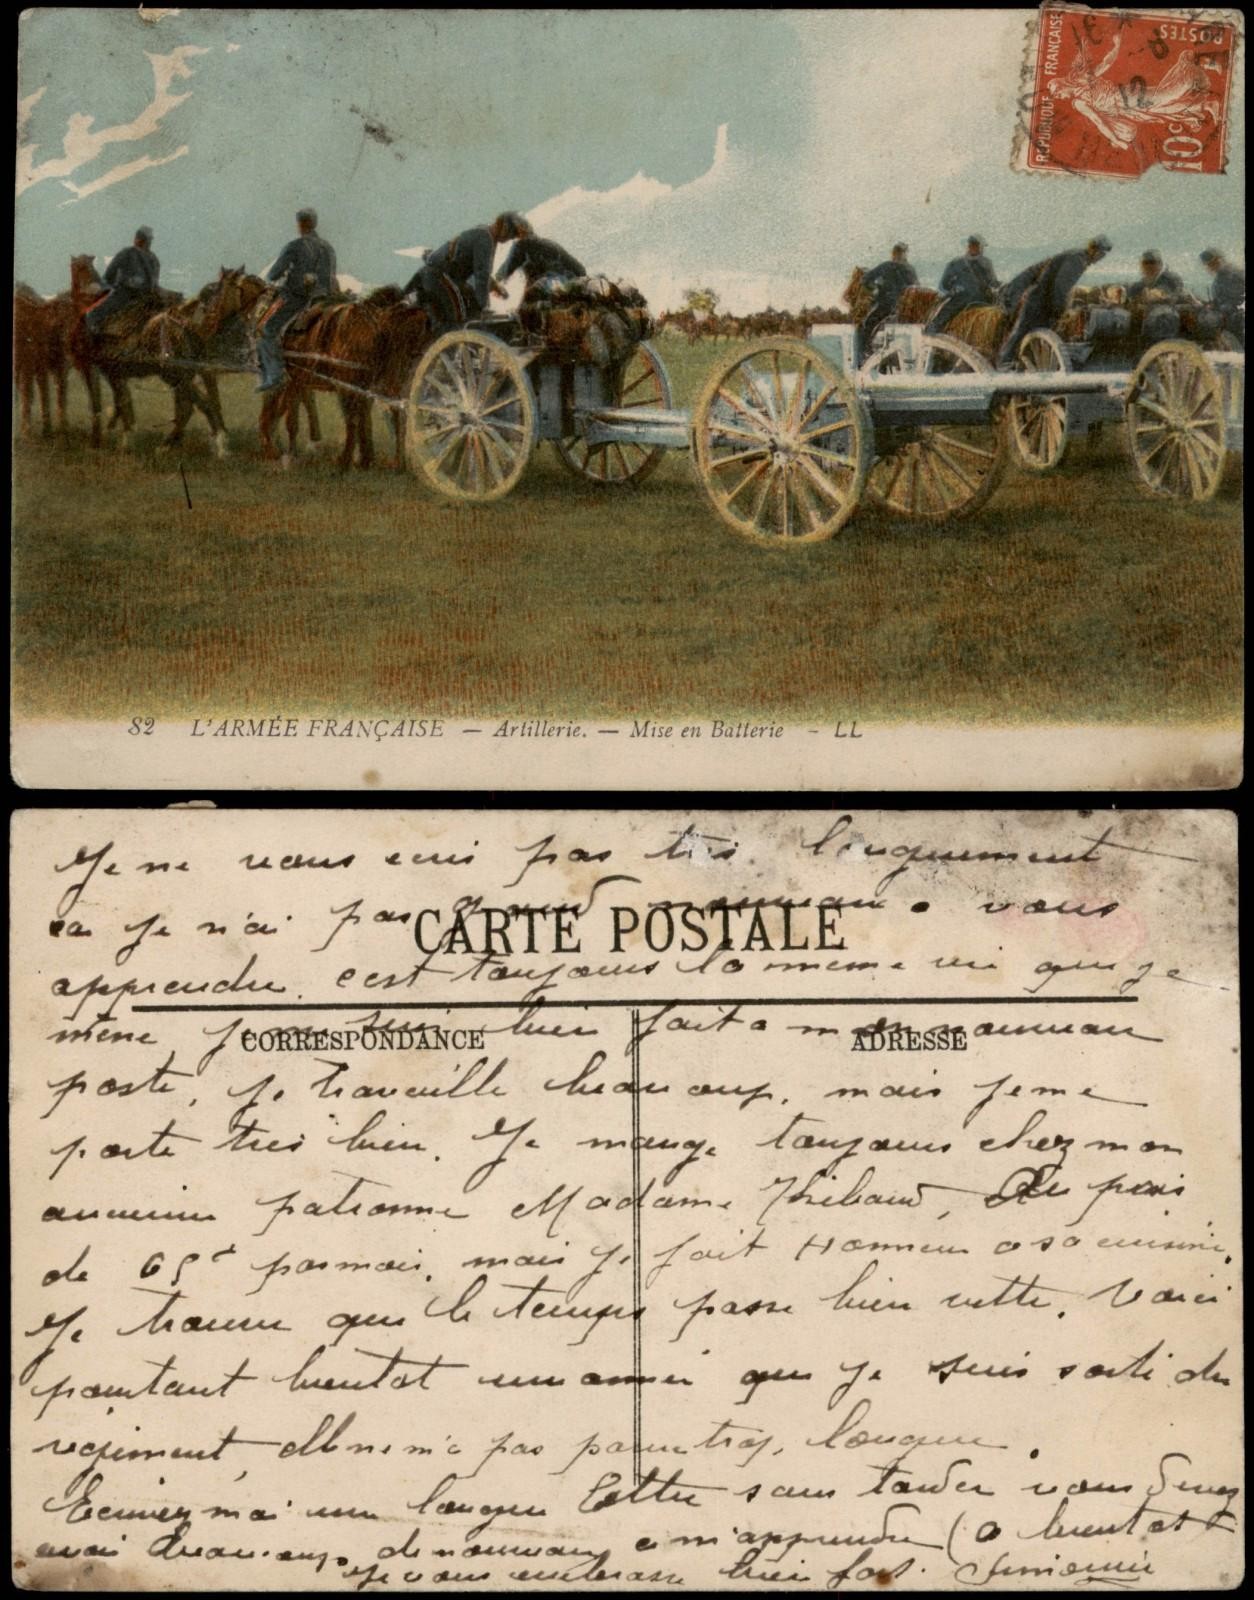 RÉPUBLIQUE FRANÇAISE
POSTES
10c
12
82 L'ARMÉE FRANÇAISE — Artillerie. — Mise en Batterie - LL
Je ne vous ecris pas très longuement
ca je n'ai pas grand nouveau a vous
CARTE POSTALE
apprendre. c'est toujours la meme vie que je
mène je me suis bien fait a mon nouveau
CORRESPONDANCE
ADRESSE
poste, je travaille beaucoup, mais je me
porte très bien. Je mange toujours chez mon
ancienne patronne Madame Thibaud, Je pais
de 65f par mois, mais je fait Honneur a sa cuisine.
Je trouve que le temps passe bien vitte. Voici
pourtant bientot une année que je suis sorti du
regiment, elle ne m'a pas parue trop longue.
Ecrivez moi une longue lettre sans tarder vous devez
avoir beaucoup de nouveau a m'apprendre (a bientot
Je vous embrasse bien fort.